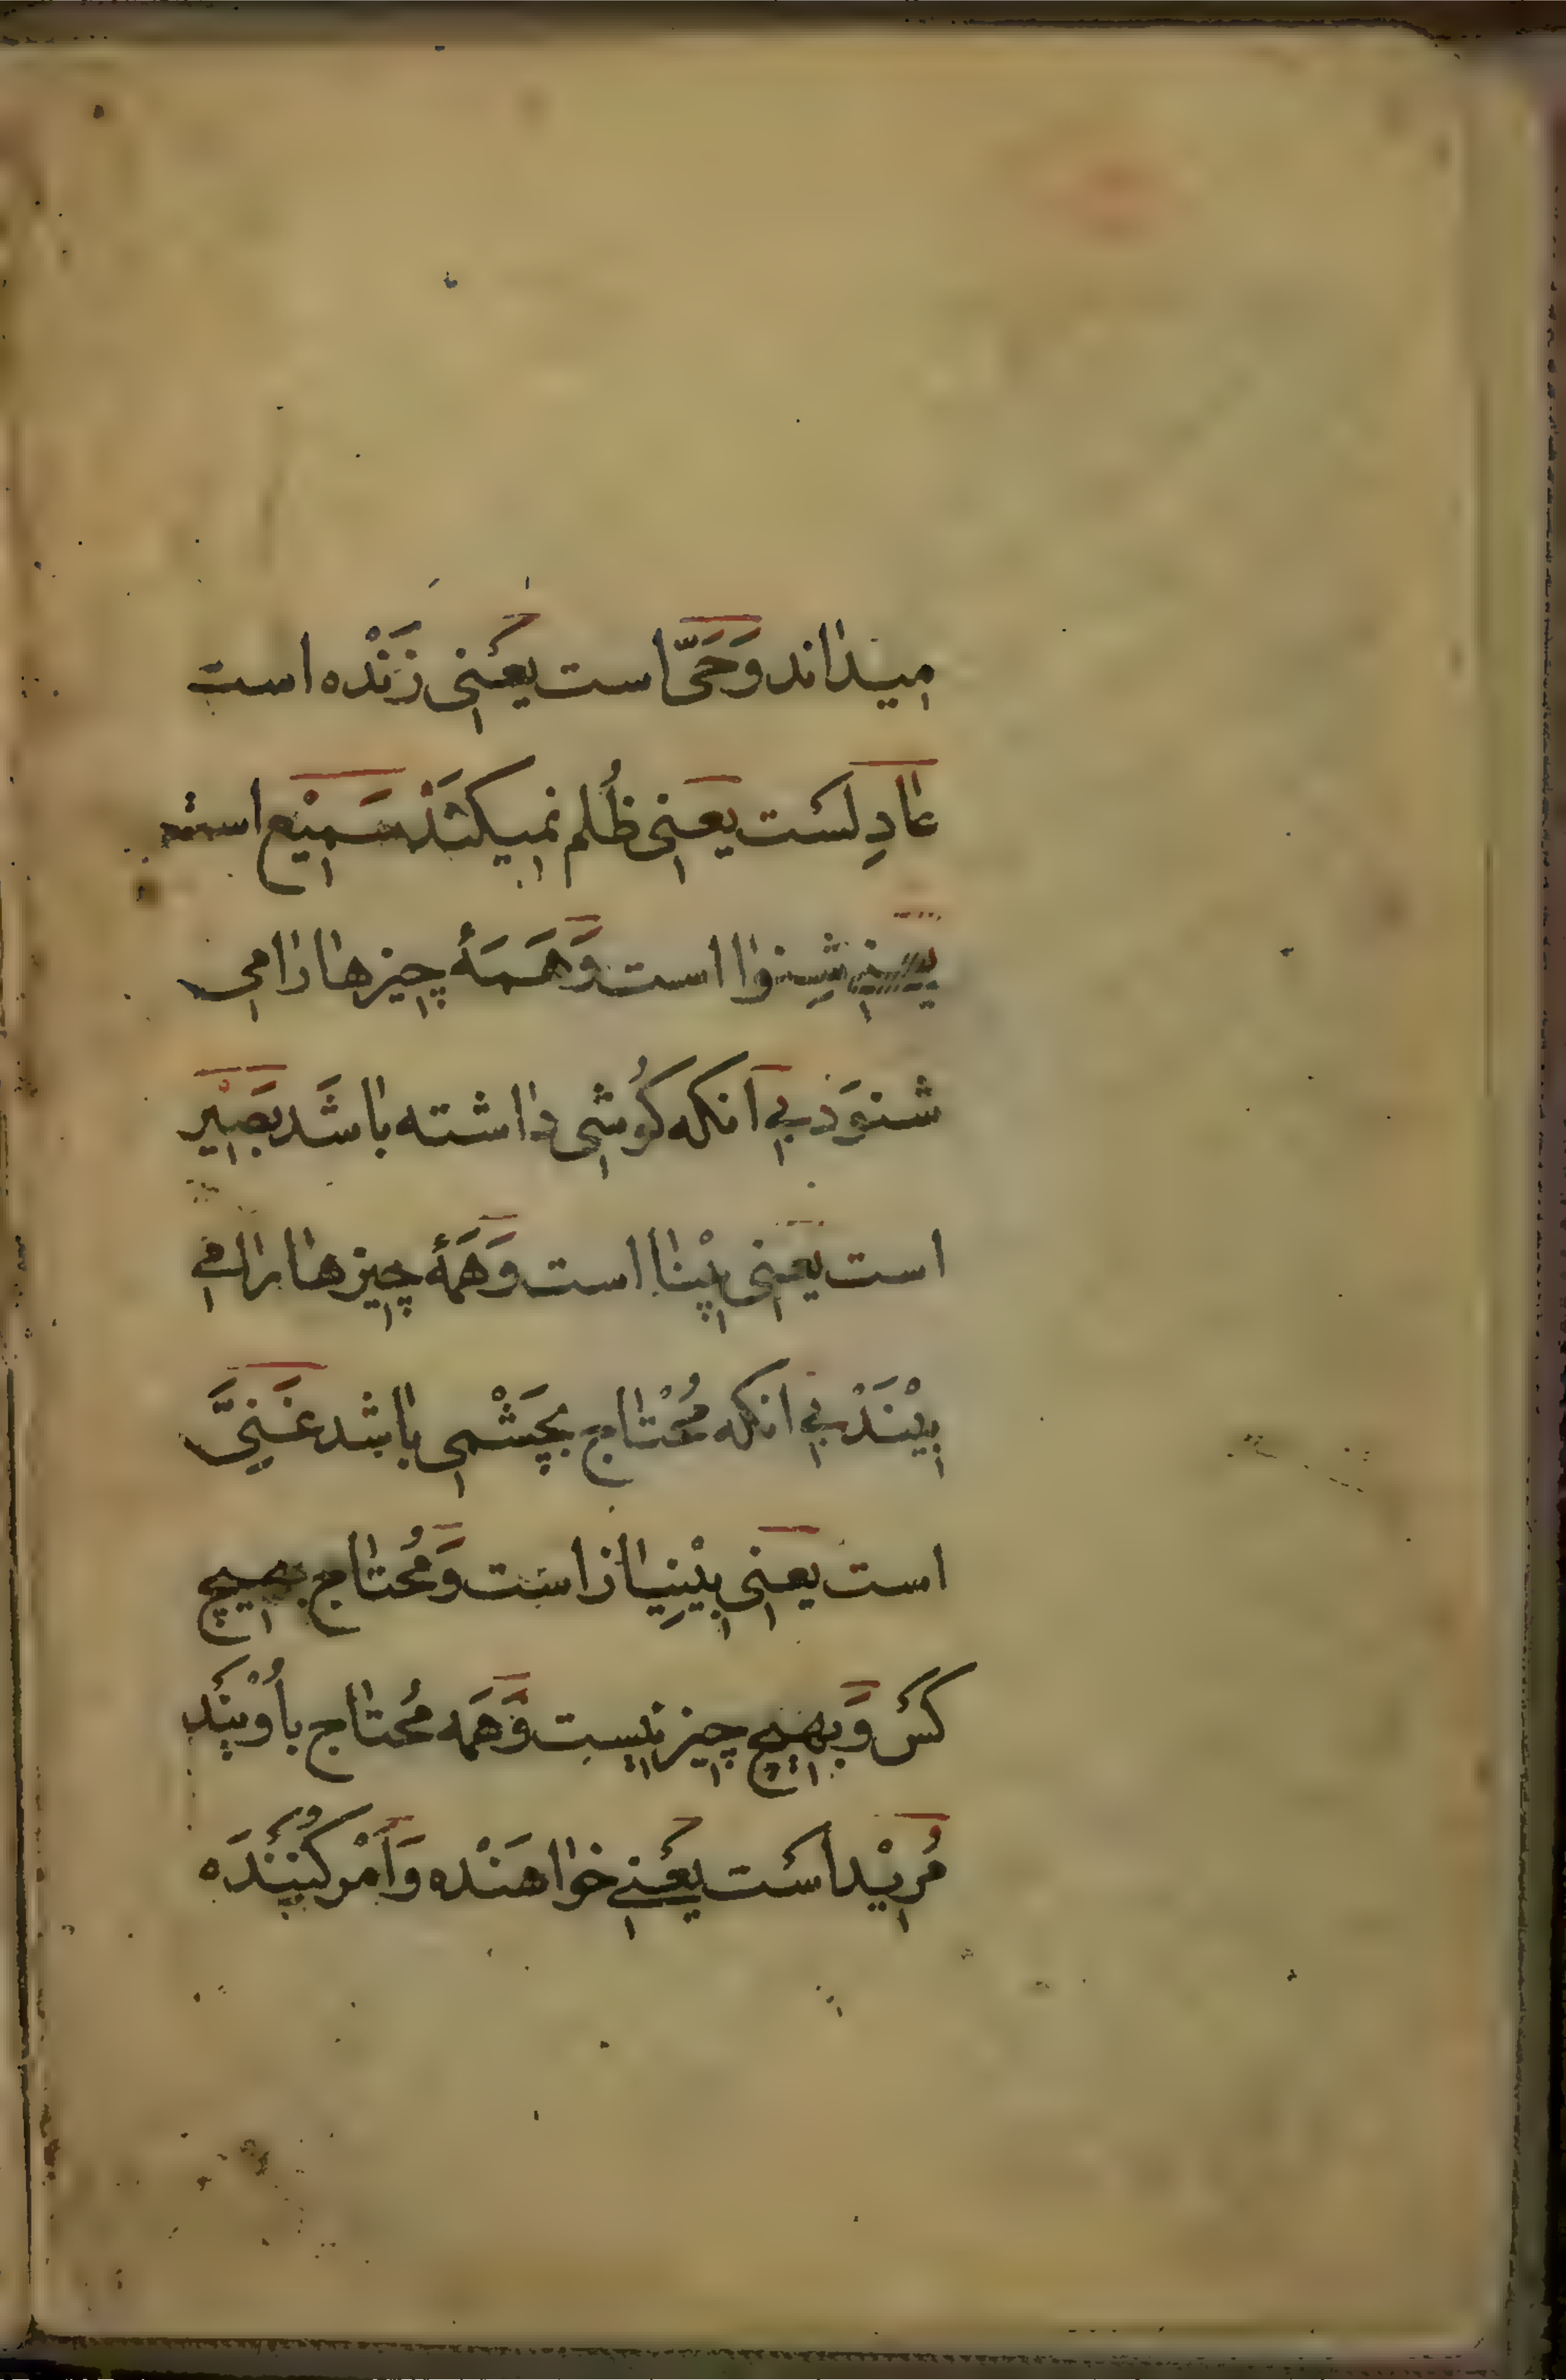 میداند وَحَیّ است یعنی زَنْده است
عادِلست یعنی ظُلم نمیکند سَمیْع است
یعنی شِنوا است وَهَمَهٔ چیزها را می
شنوَد بی آنکه کُوشی داشته باشَد بَصیْر
است یعنی بیْنا است وَهَمَهٔ چیزها را می
بیْنَدْ بی انکه مُحْتاج بچَشْمی باشد غَنیَّ
است یعنی بیْنِیاز است وَمُحتاج بهیچ
کَس وَبهیچ چیز نیست وَهَمَه مُحتاج باُوْیند
مُریْد است یعنی خواهَنْده وَاَمْر کُنَنْدَه